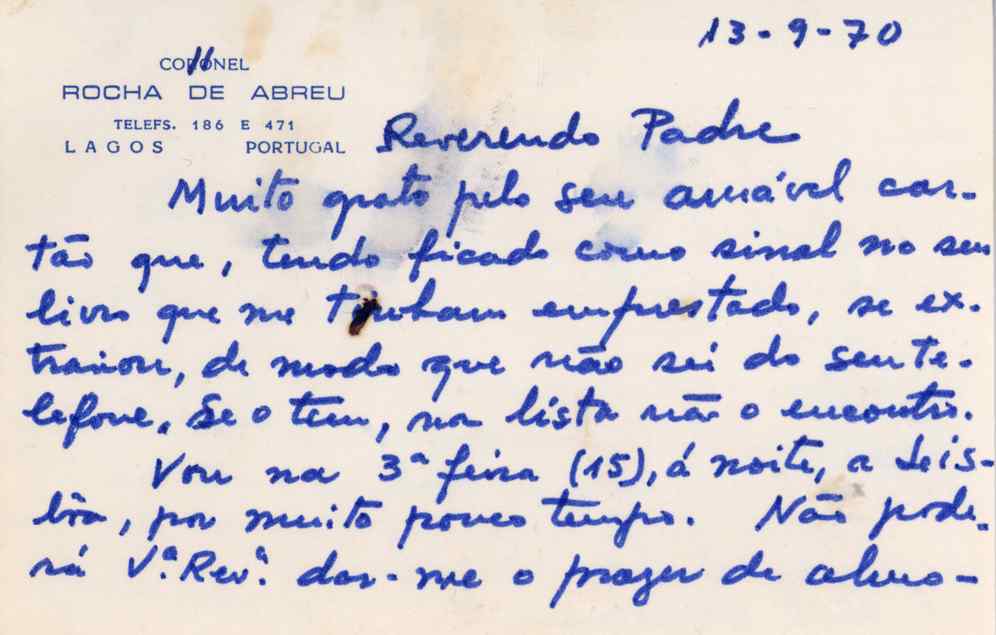 13-9-70
CORONEL
ROCHA DE ABREU
TELEFS. 186 E 471
LAGOS PORTUGAL
Reverendo Padre
Muito grato pelo seu amável car-
tão que, tendo ficado como sinal no seu
livro que me tinham emprestado, se ex-
traviou, de modo que não sei do seu te-
lefone. Se o tem, na lista não o encontro.
Vou na 3ª feira (15), á noite, a Lis-
bôa, por muito pouco tempo. Não pode-
rá V.ª Rev.ª dar-me o prazer de almo-